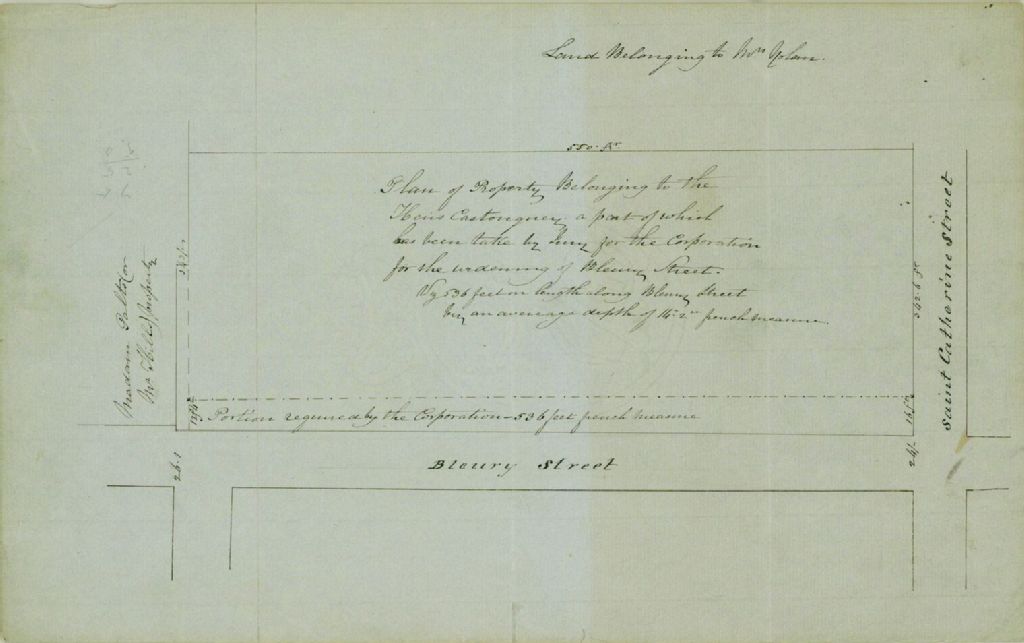 Land Belonging to Mrs
550 fr
Plan of Property Belonging to the
Heirs Castonguey a part of which
has been take by Jury for the Corporation
for the widening of Bleury Street.
Vz 536 feet in length along Bleury Street
by an average depth of 14"2" french measure.
Saint Catherine Street
Madam
Mr property
Portion required by the Corporation 536 feet french measure
Bleury Street
26.1
24/-